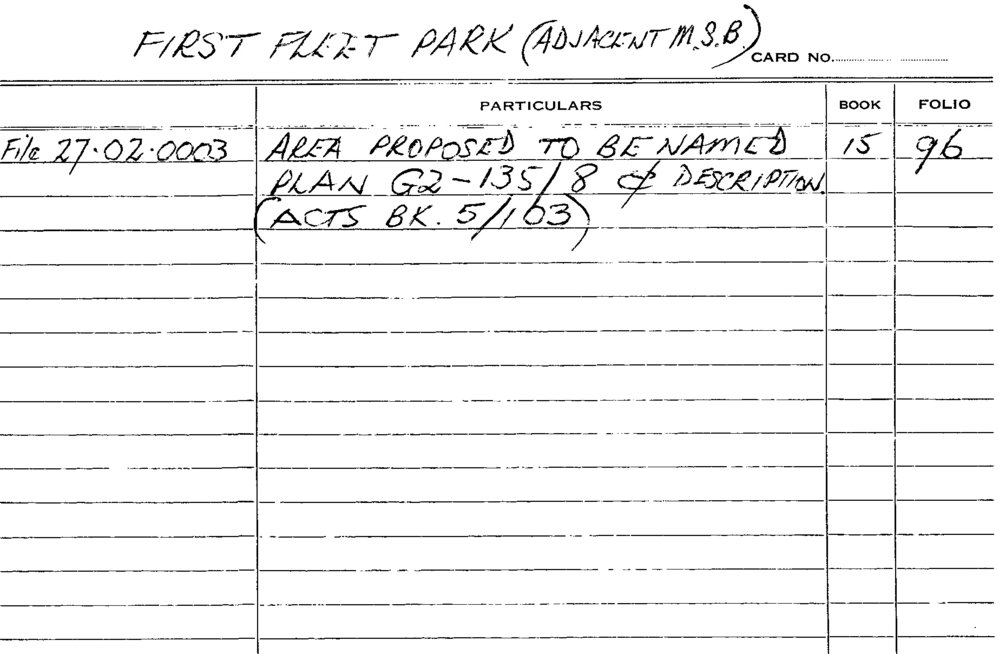 FIRST FLEET PARK (ADJACENT M.S.B.)
CARD NO.
PARTICULARS BOOK FOLIO
File 27.02.0003 AREA PROPOSED TO BE NAMED 15 96
PLAN G2-135/8 & DESCRIPTION.
(ACTS BK. 5/103)